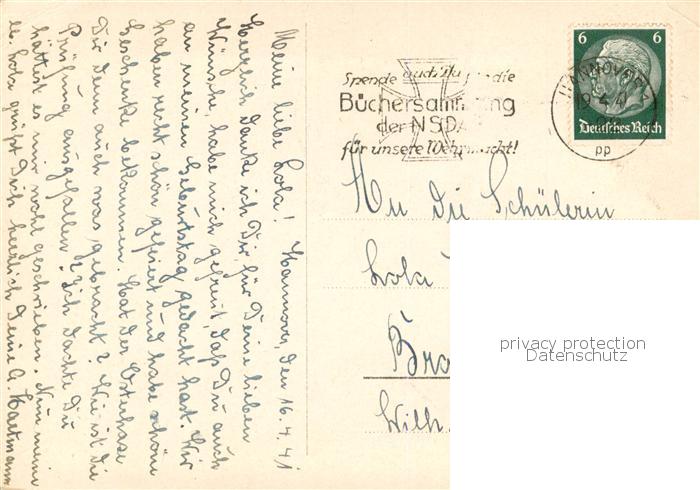 Meine liebe Lola! Hannover, den 16.4.41
Herzlich danke ich Dir für Deine lieben
Wünsche, habe mich gefreut, daß Du auch
an meinen Geburtstag gedacht hast. Wir
haben recht schön gefeiert und habe schöne
Geschenke bekommen. Hat der Osterhase
Dir denn auch was gebracht? Wie ist die
Prüfung ausgefallen? Ich dachte Du
hättest es mir wohl geschrieben. Nun meine
lb. Lola grüßt Dich herzlich Deine A. Hartmann
Spende auch Du für die
Büchersammlung
der NSDA
für unsere Wehrmacht!
6 6
Deutsches Reich
HANNOVER
19.4.41
pp
An die Schülerin
Lola
Bra
Wilh.
privacy protection
Datenschutz